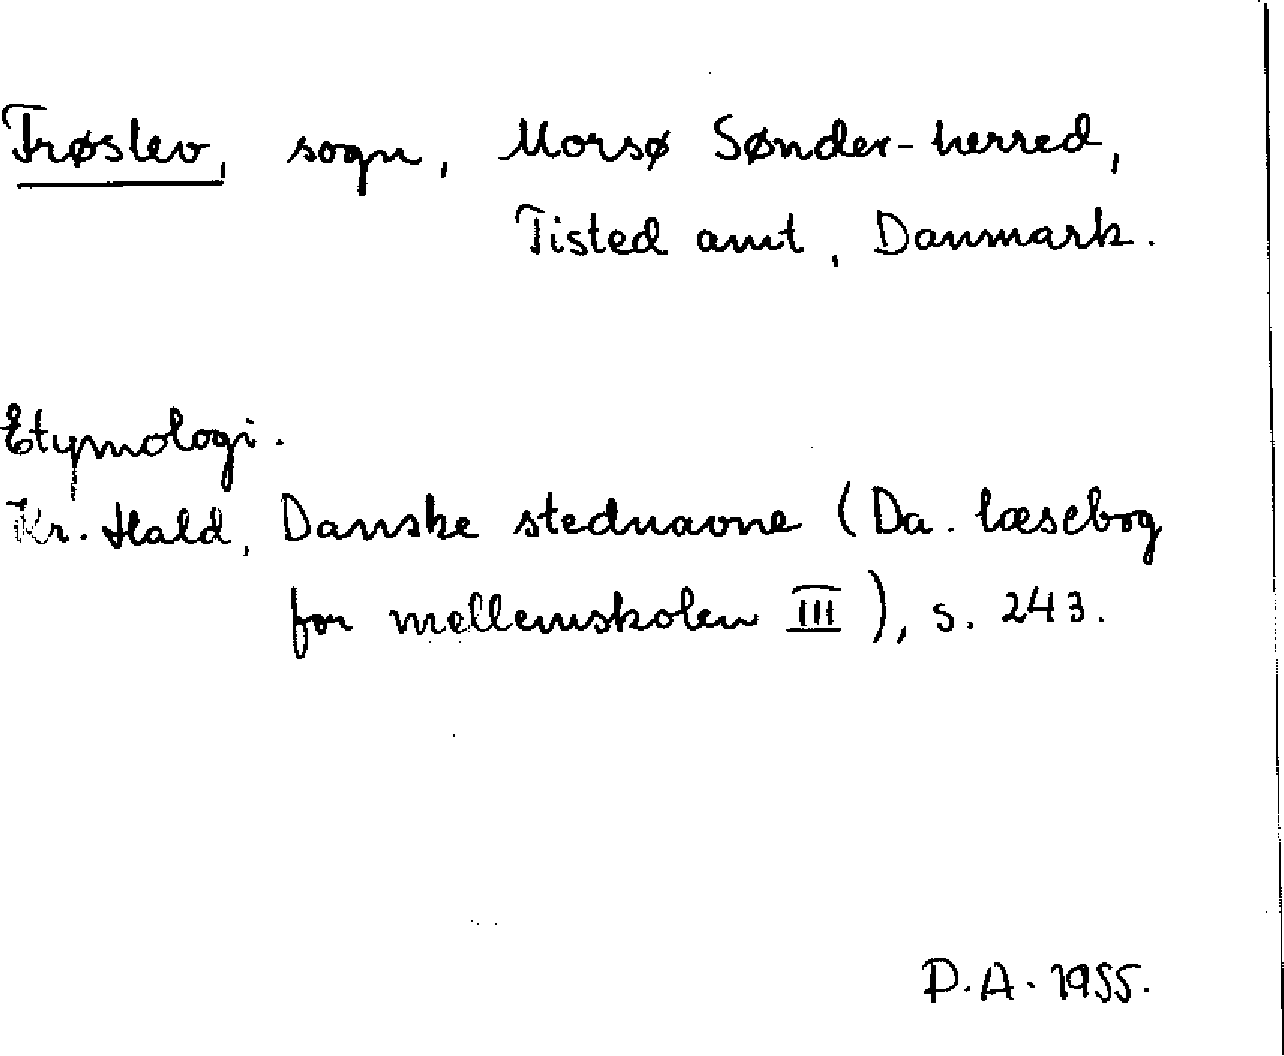 Frøslev, sogn, Morsø Sønder-herred,
Tisted amt, Danmark.
Etymologi.
Kr. Hald, Danske stednavne (Da. læsebog
for mellemskolen III), s. 243.
P.A. 1955.